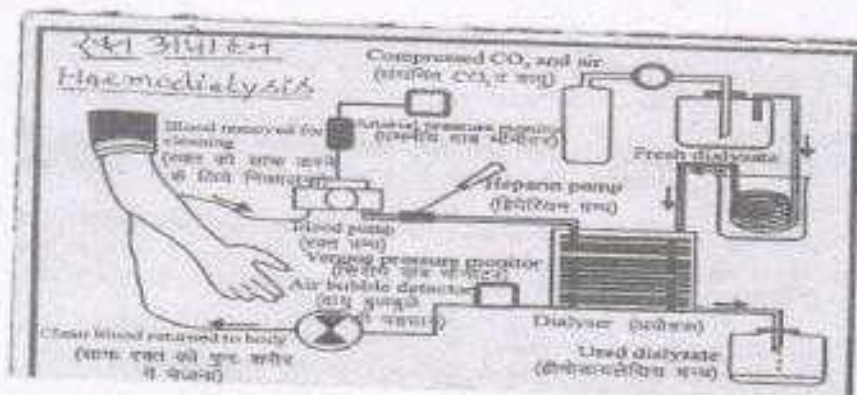 रक्त अपोहन
Haemodialysis
Compressed CO₂ and air
(संपीडित CO₂ व वायु)
Blood removed for
cleaning
(रक्त को साफ करने
के लिये निकालना)
pressure monitor
Fresh dialysate
Heparin pump
(हिपेरिन पम्प)
Blood pump
(रक्त पम्प)
Venous pressure monitor
Air bubble detector
(वायु बुलबुले
Dialyser
Clean blood returned to body
(साफ रक्त को पुनः शरीर
में भेजना)
Used dialysate